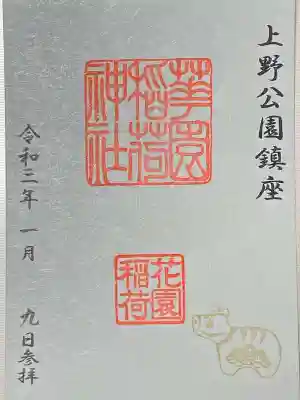 上野公園鎮座
華園
稲荷
神社
花園
稲荷
令和三年一月九日参拝